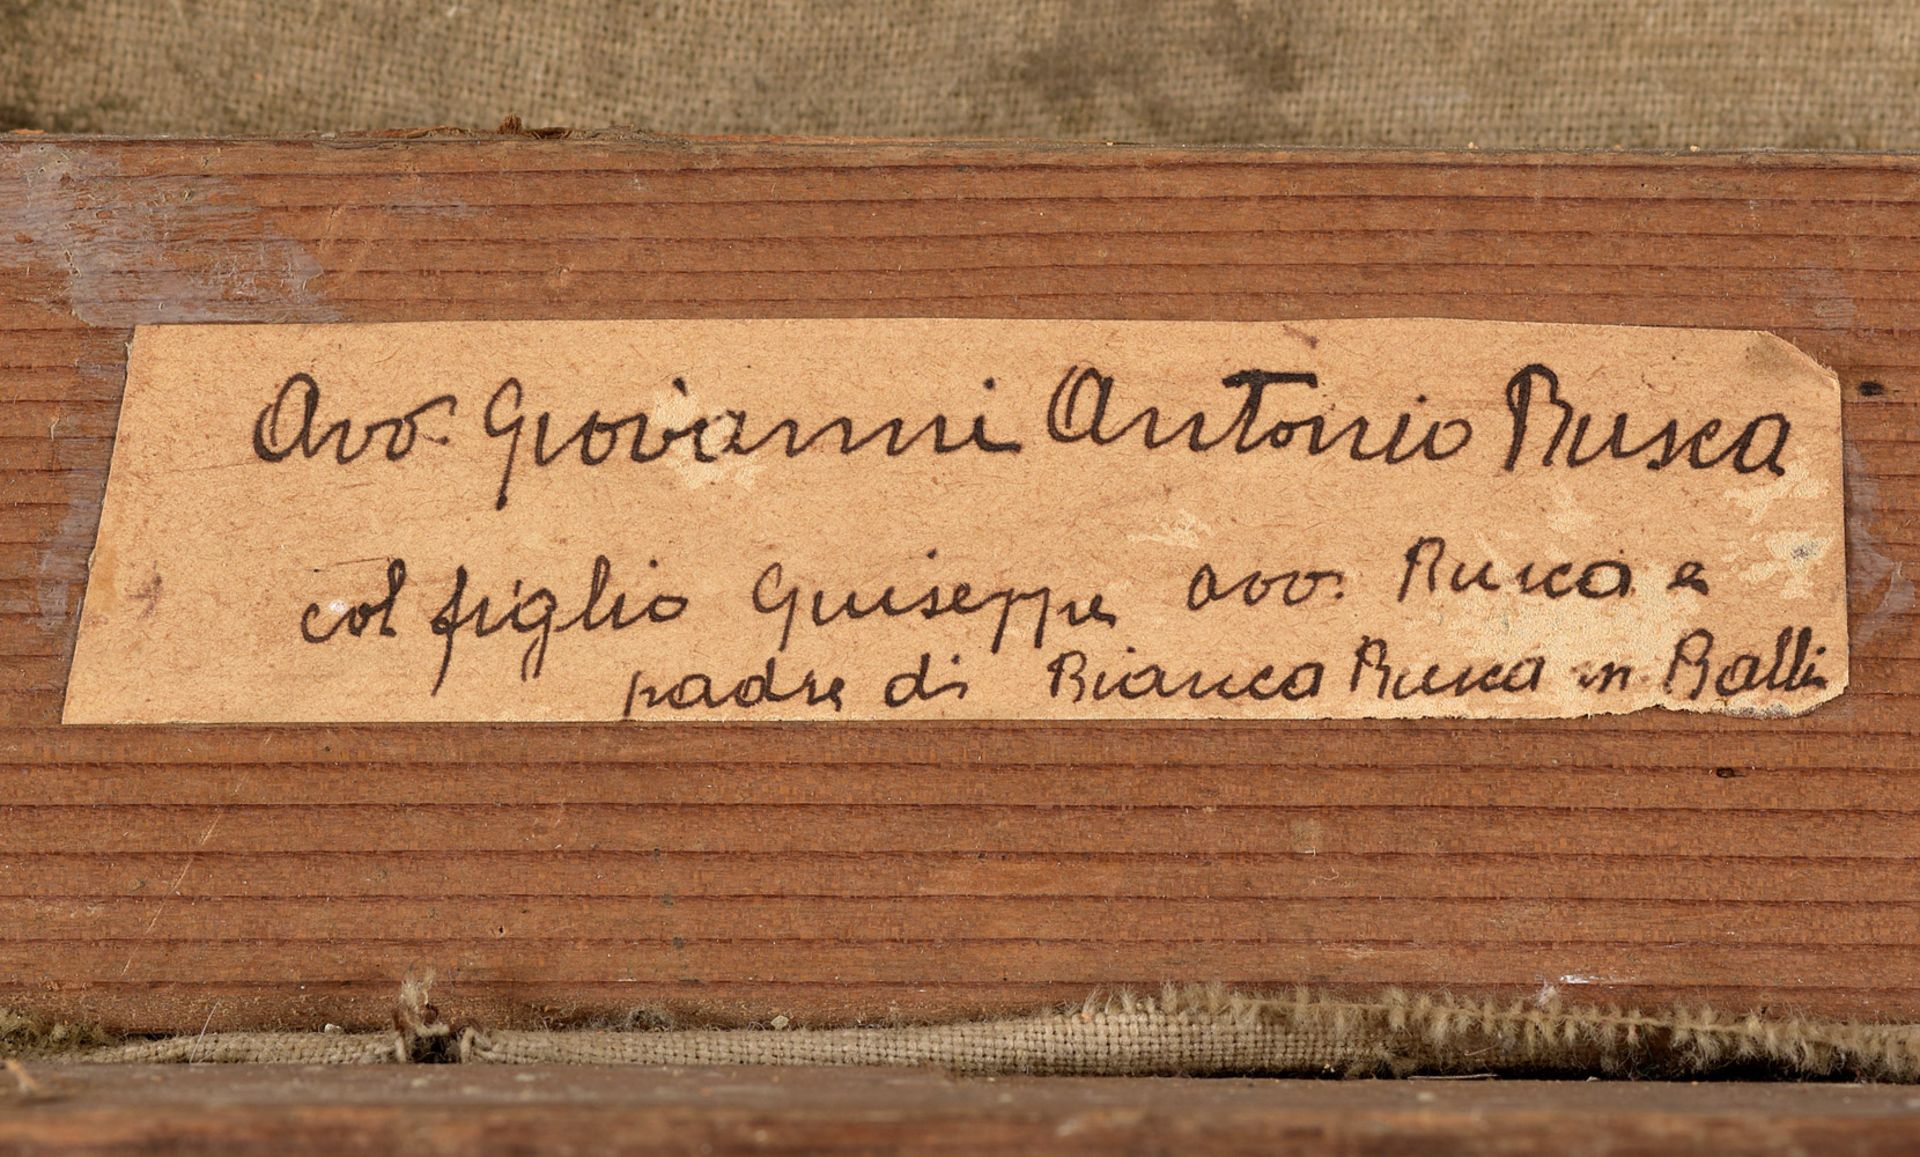 Avv. Giovanni Antonio Rusca
col figlio Giuseppe avv. Rusca e
padre di Bianca Rusca in Balli